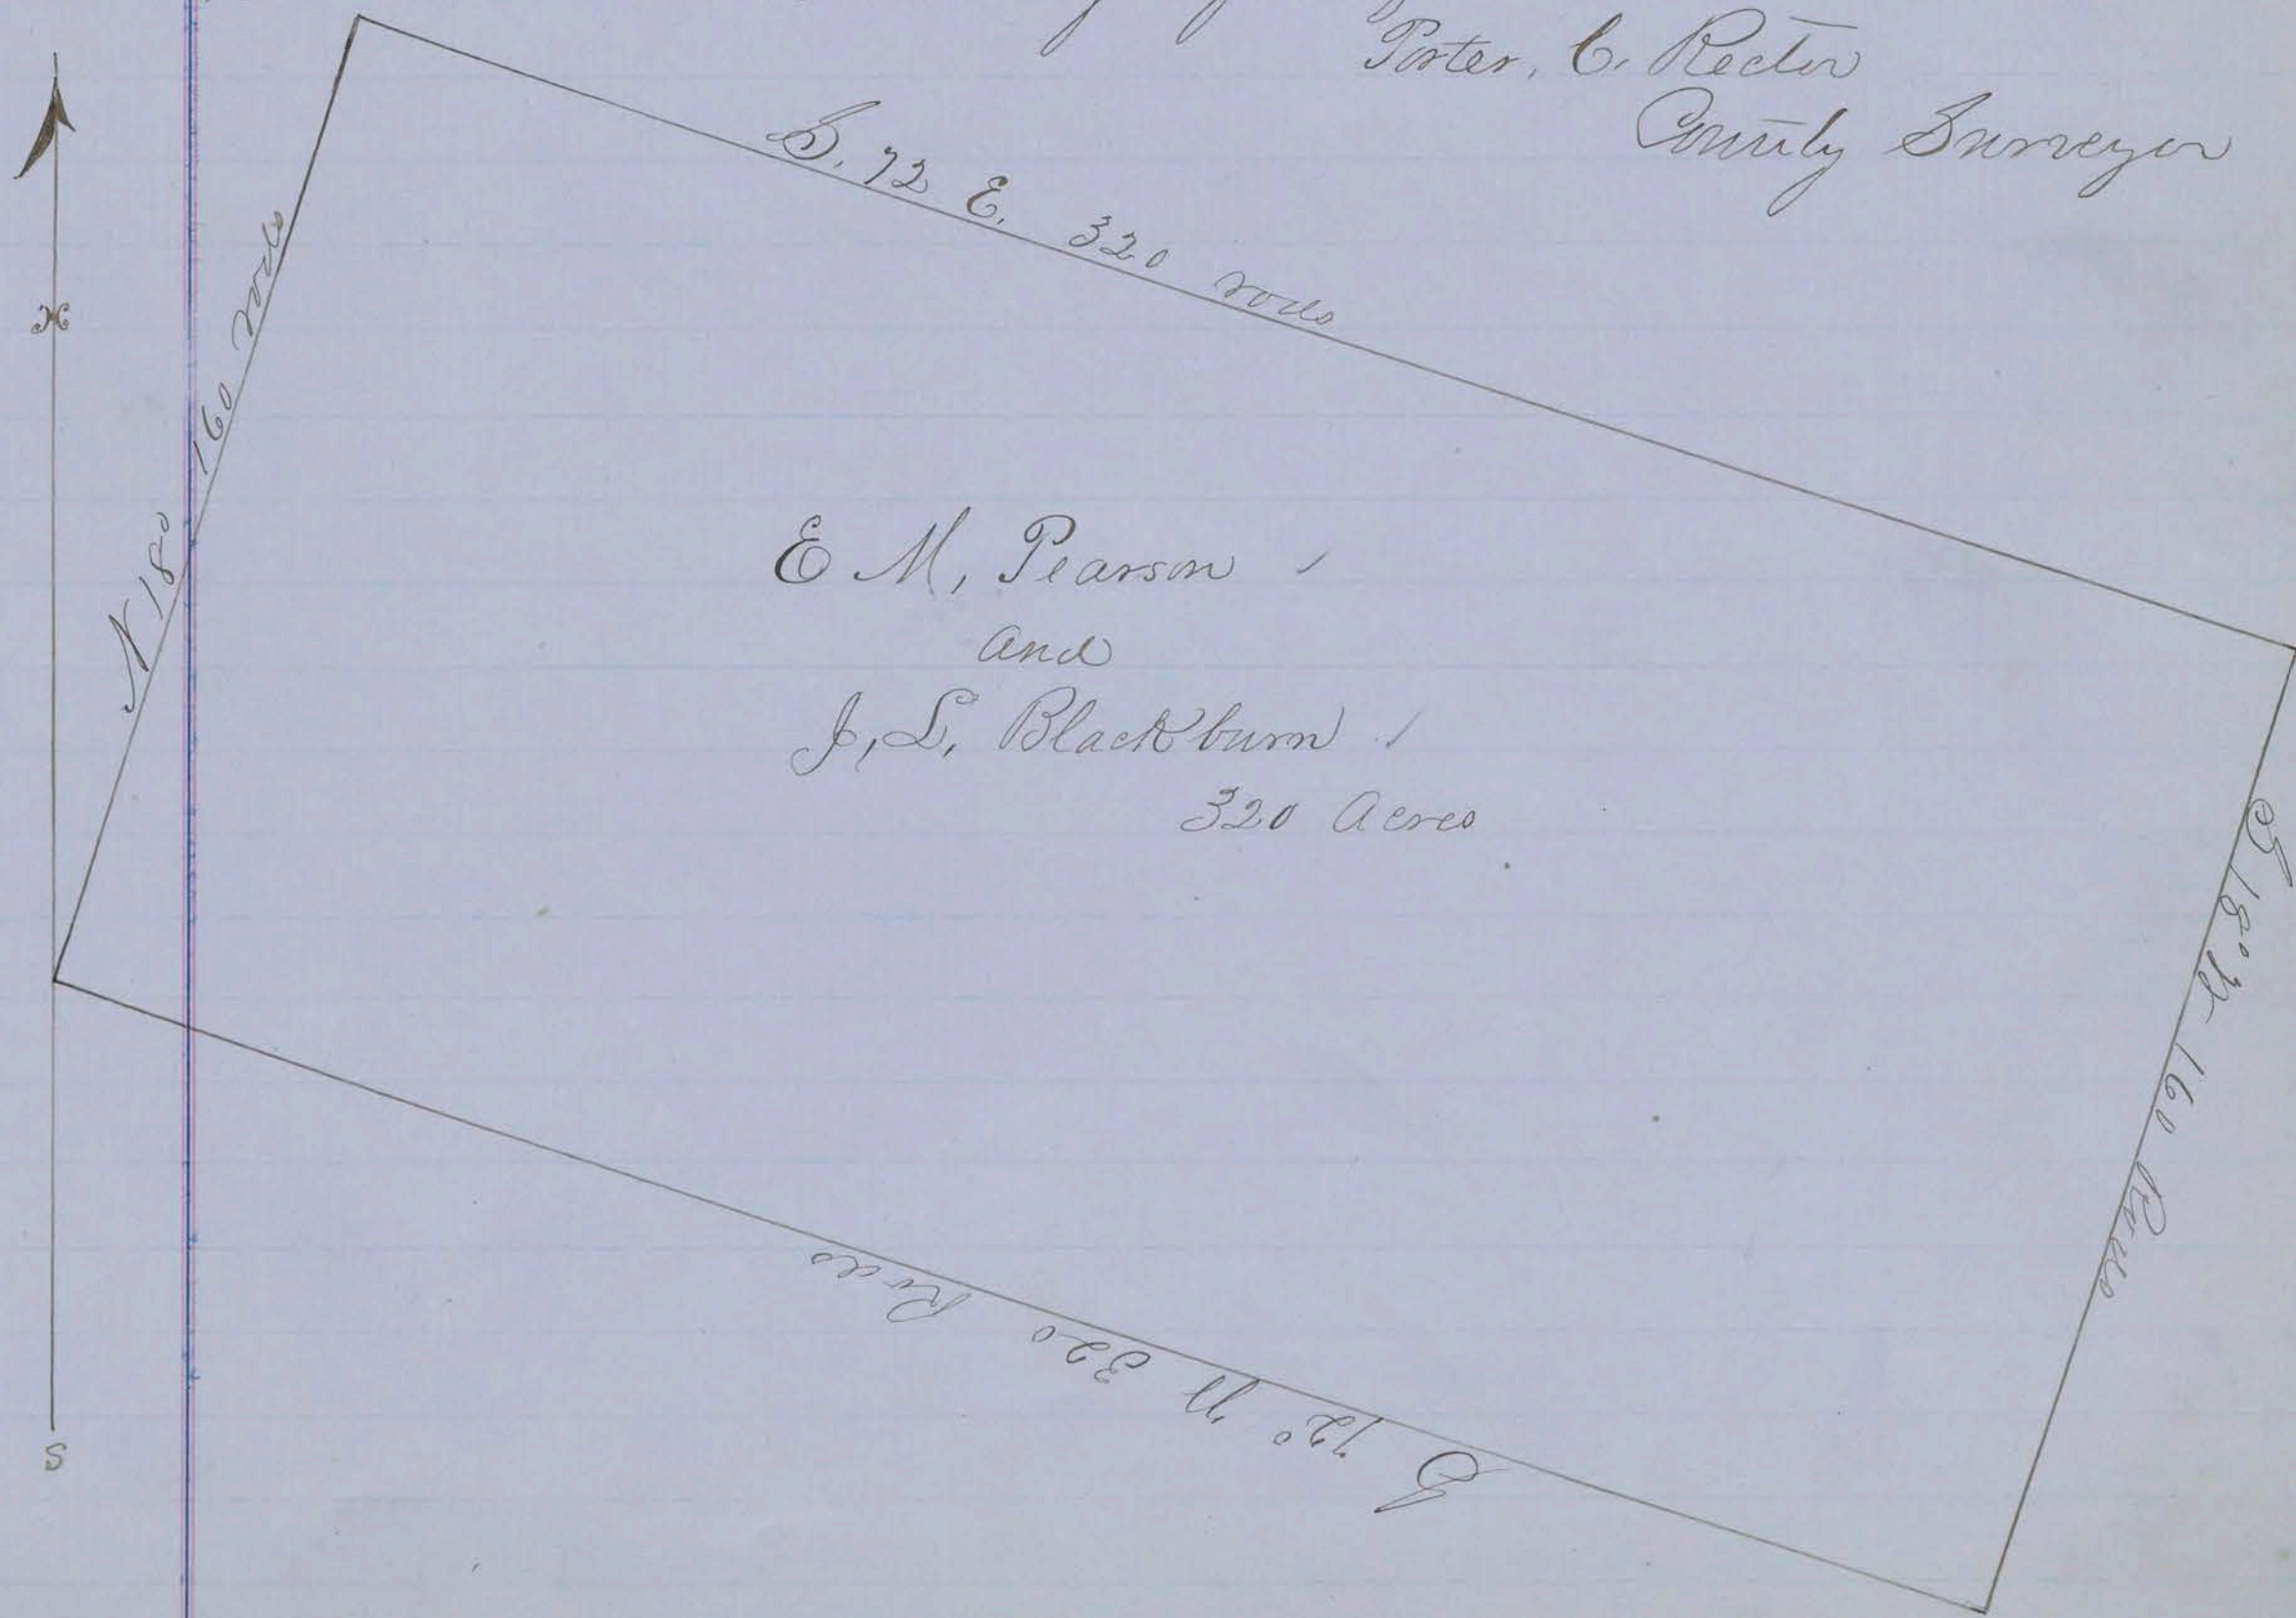 Porter, C. Rector
County Surveyor
S. 72 E. 320 rods
N 18° 160 rods
E M, Pearson
and
J, L, Blackburn
320 Acres
S 18° W 160 Rods
72° W. 320 Rods
S